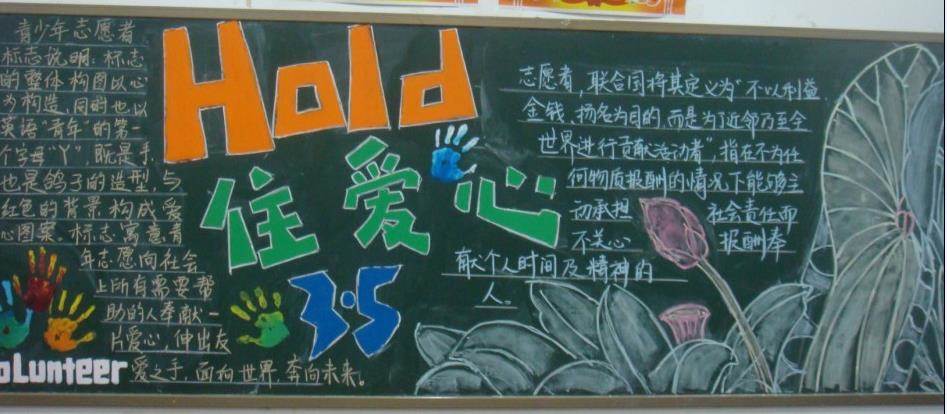 青少年志愿者
标志说明：标志
的整体构图以心
为构造，同时也以
英语"青年"的第一
个字母"Y"，既是手，
也是鸽子的造型，与
红色的背景构成爱
心图案。标志寓意青
年志愿向社会
上所有需要帮
助的人奉献一
片爱心，伸出友
爱之手，面向世界，奔向未来。
oLunteer
Hold
住爱心
3·5
志愿者，联合国将其定义为"不以利益、
金钱、扬名为目的，而是为了近邻乃至全
世界进行贡献活动者"，指在不为任
何物质报酬的情况下能够主
动承担 社会责任而
不关心 报酬奉
献个人时间及精神的
人。